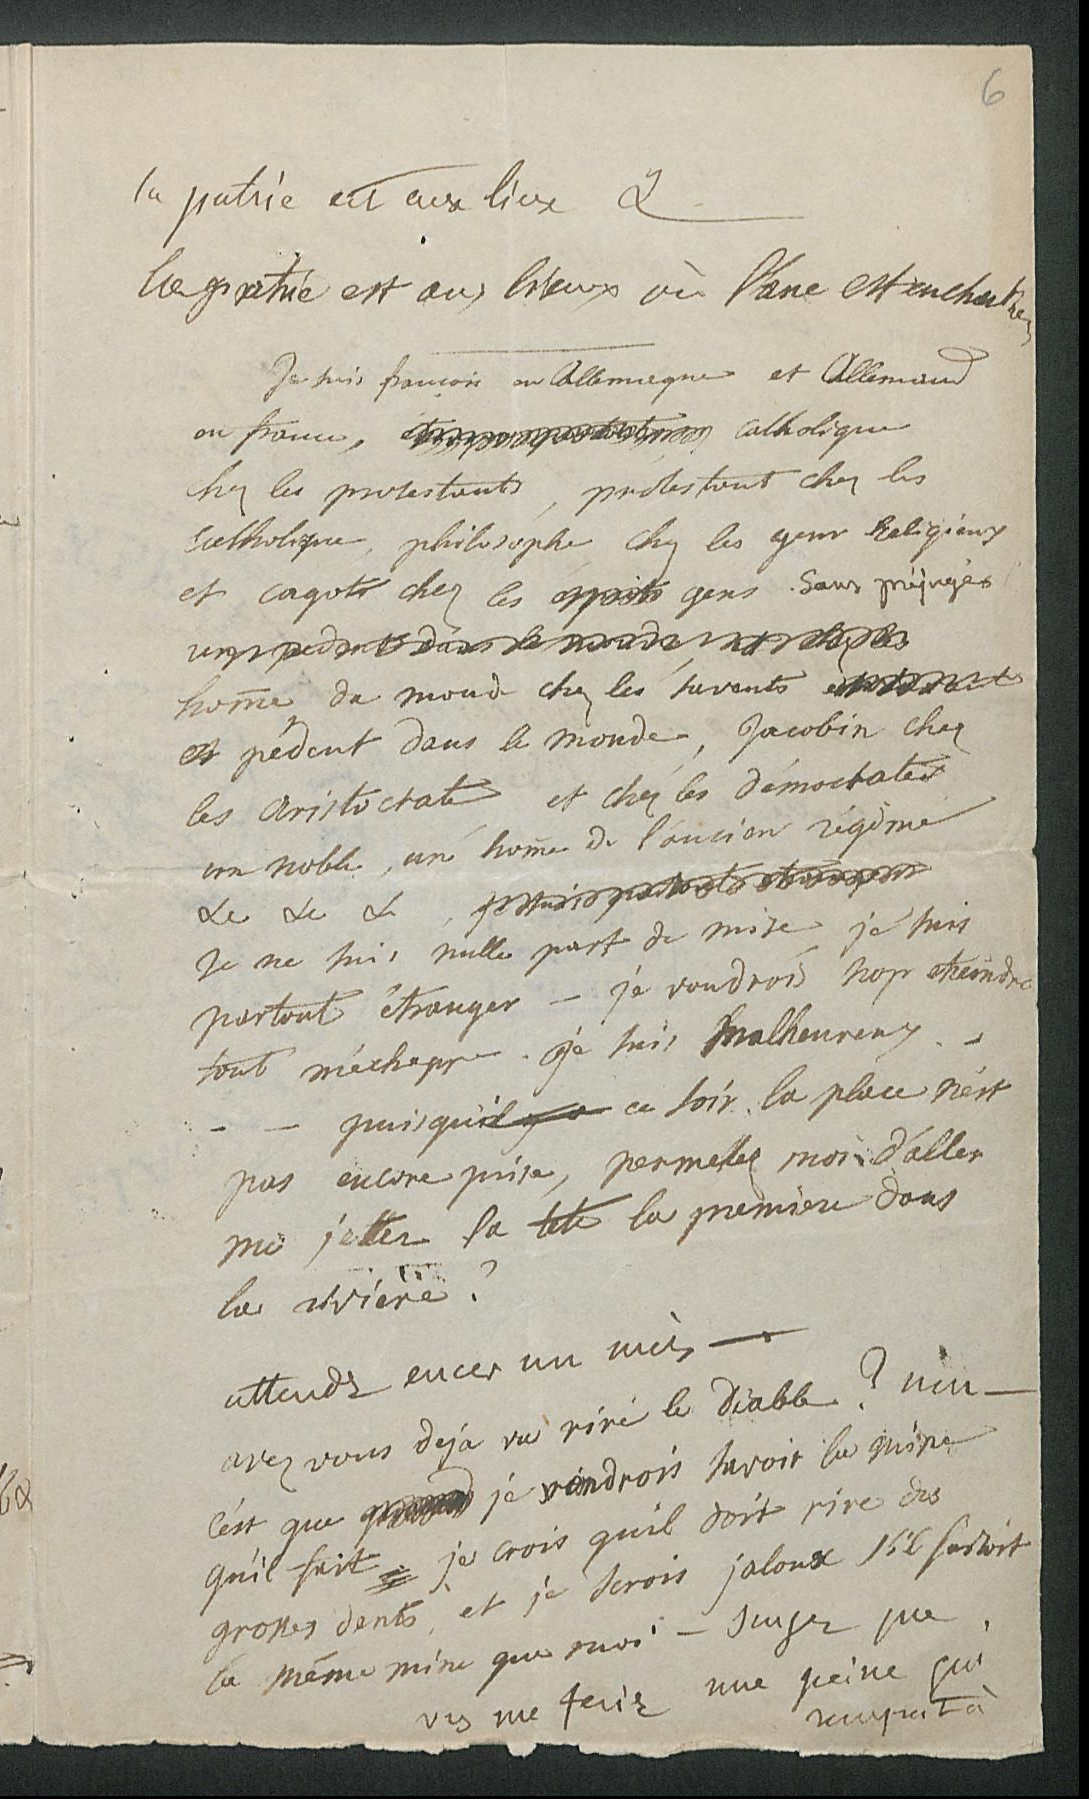 6
la patrie est aux lieux &
la patrie est aux lieux où l'ame est enchainée
Je suis françois en Allemagne et Allemand
en france, catholique
chez les protestants, protestant chez les
catholique, philosophe chez les gens Religieux
et cagots chez les esprits gens sans préjugés
home du monde chez les savents
et pédent dans le monde, Jacobin chez
les aristocrate et chez les démocrates
un noble, un home de l'ancien régime
&c &c &
Je ne suis nulle part de mise je suis
partout étranger – je voudrois
tout méchappe. je suis malheureux . –
– – puisquil y a ce soir la place n'est
pas encore prise, permettez moi d'aller
me jetter la tete la premiere dans
la rivière ?
attendez encer un
avez vous deja vu rire le diable ? non –
c'est que je voudrois savoir la mine
qu'il fait je crois qu'il doit rire des
grosses dents, et je serois jaloux s'il faisoit
la même mine que moi – songez que
vs me feriez une peine qui